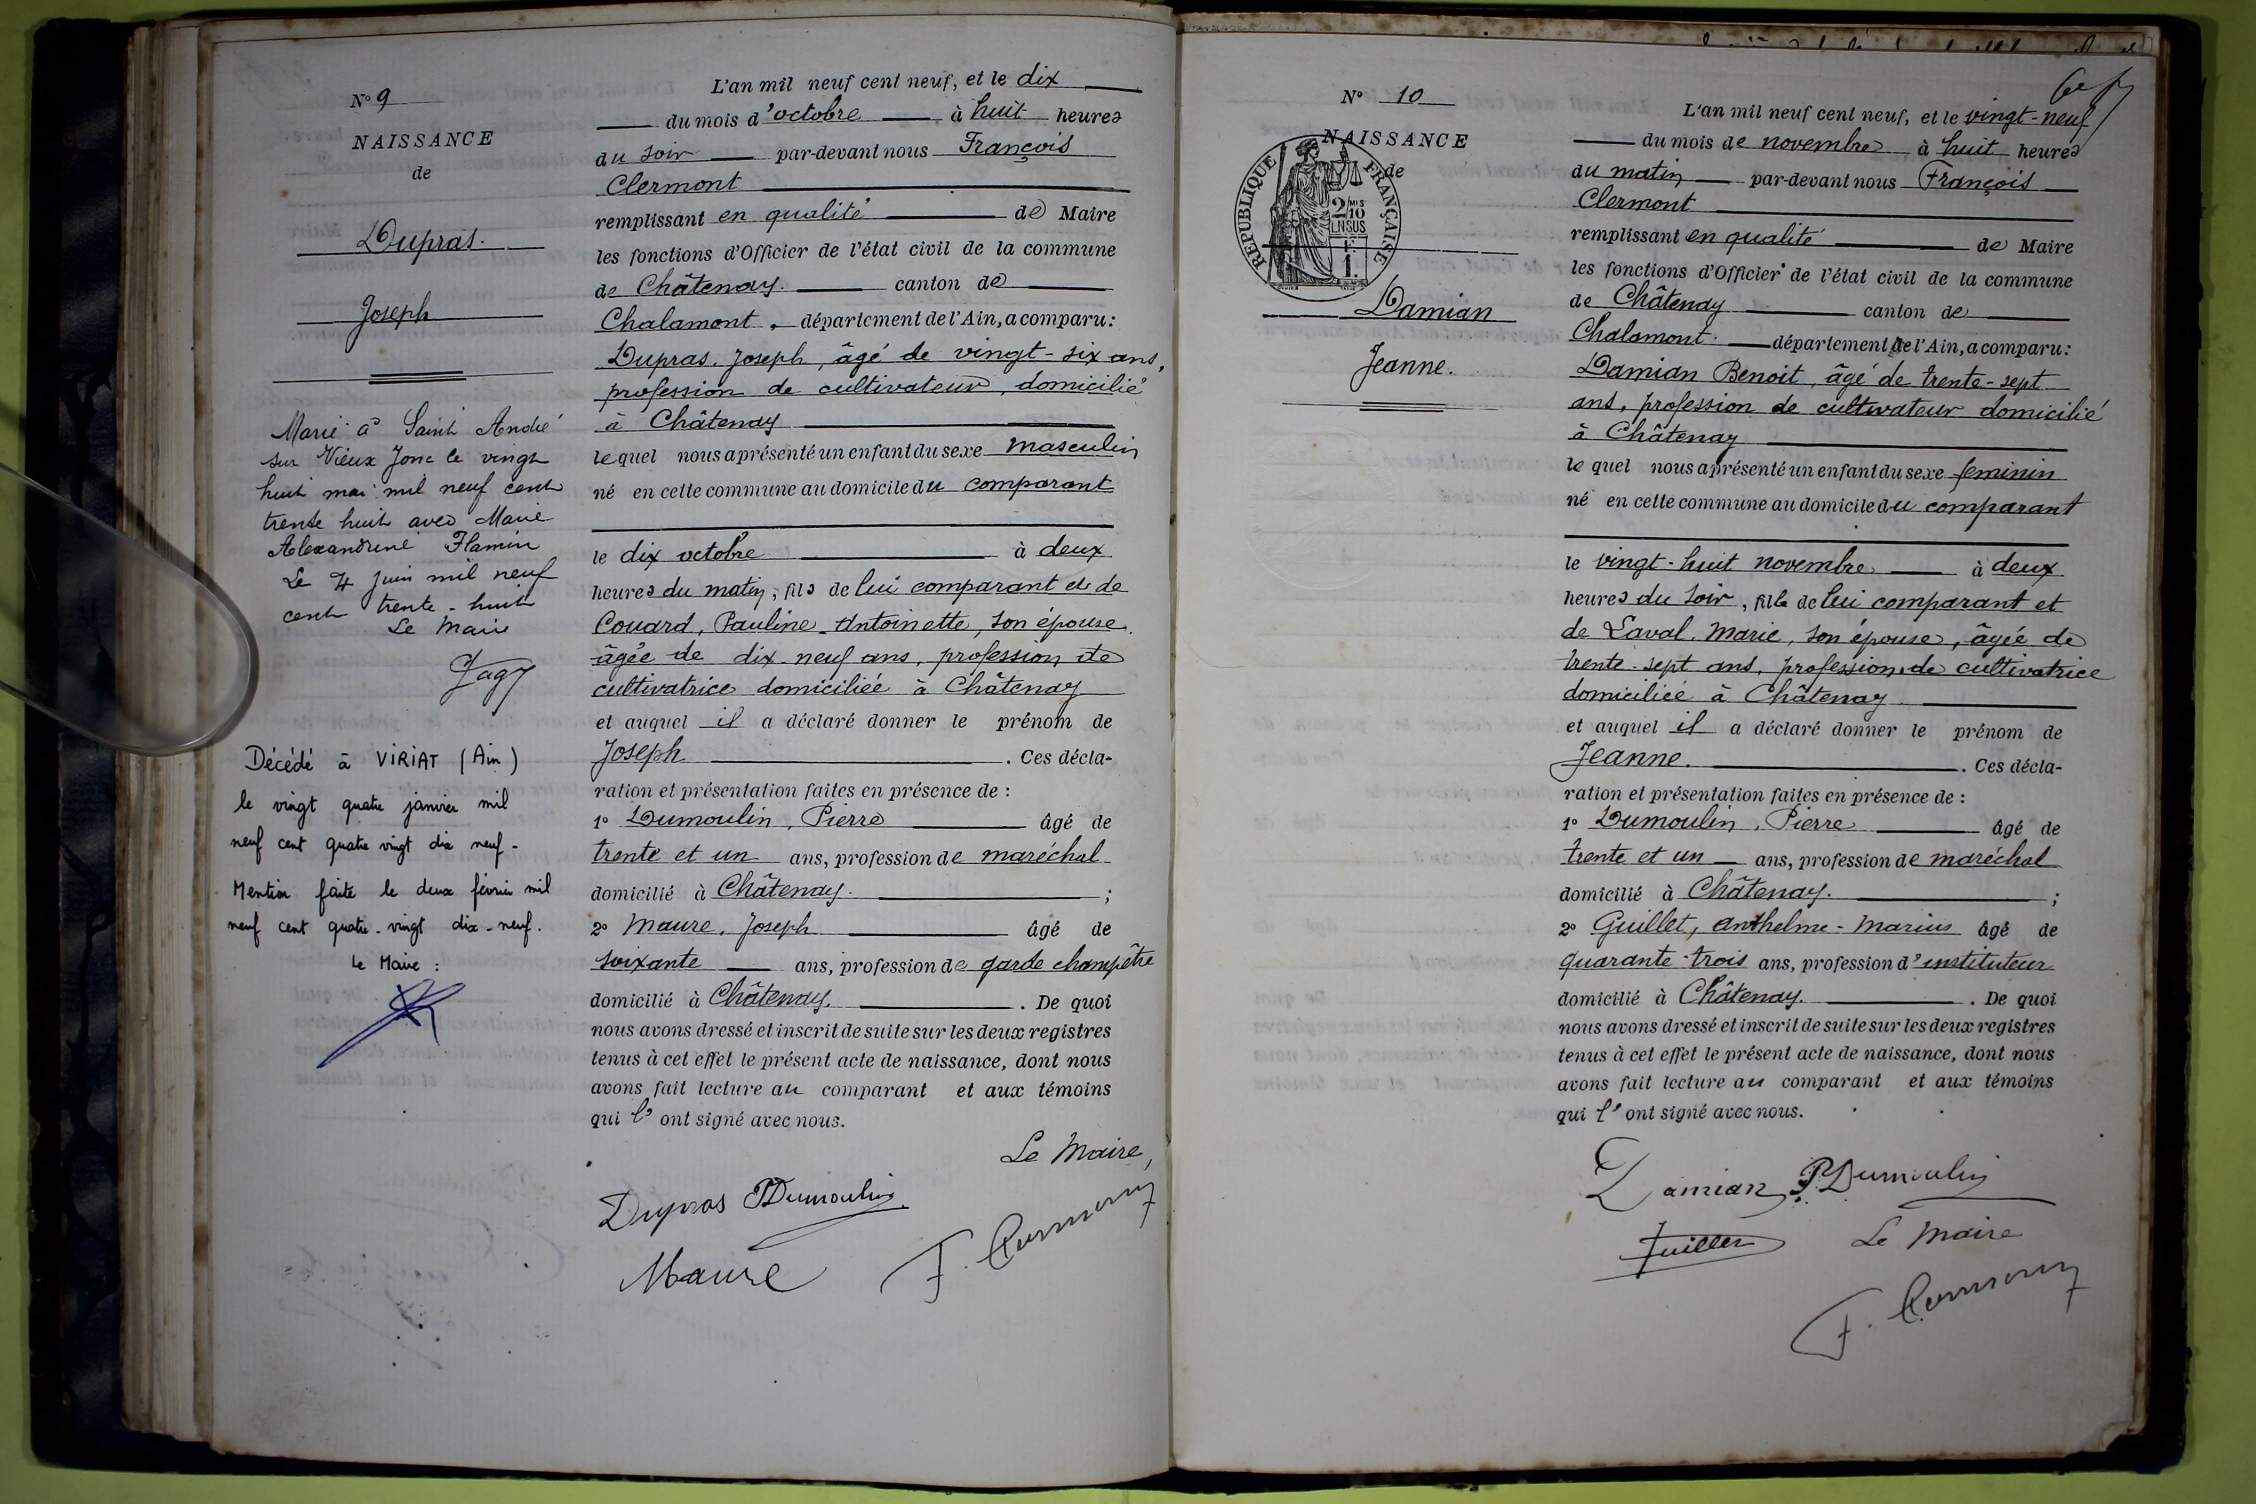 N° 9
NAISSANCE
de
Dupras.
Joseph
Marié à Saint André
sur Vieux Jonc le vingt
huit mai mil neuf cent
trente huit avec Marie
Alexandrine Flamin
Le 4 juin mil neuf
cent trente-huit
Le Maire
Décédé à VIRIAT (Ain)
le vingt quatre janvier mil
neuf cent quatre vingt dix neuf-
Mention faite le deux février mil
neuf cent quatre-vingt dix-neuf.
Le Maire :
L'an mil neuf cent neuf, et le dix
du mois d'octobre à huit heures
du soir par-devant nous François
Clermont
remplissant en qualité de Maire
les fonctions d'Officier de l'état civil de la commune
de Châtenay. canton de
Chalamont. département de l'Ain, a comparu:
Dupras. Joseph, âgé de vingt-six ans,
profession de cultivateur, domicilié
à Châtenay
lequel nous a présenté un enfant du sexe masculin
né en cette commune au domicile du comparant
le dix octobre à deux
heures du matin, fils de lui comparant et de
Couard, Pauline-Antoinette, son épouse
âgée de dix-neuf ans, profession de
cultivatrice domiciliée à Châtenay
et auquel il a déclaré donner le prénom de
Joseph. Ces décla-
ration et présentation faites en présence de :
1° Dumoulin, Pierre âgé de
trente et un ans, profession de maréchal
domicilié à Châtenay. ;
2° Maure, Joseph âgé de
soixante ans, profession de garde champêtre
domicilié à Châtenay. . De quoi
nous avons dressé et inscrit de suite sur les deux registres
tenus à cet effet le présent acte de naissance, dont nous
avons fait lecture au comparant et aux témoins
qui l'ont signé avec nous.
Le Maire,
Dupras PDumoulin
Maure F. Clermont
N° 10
NAISSANCE
de
REPUBLIQUE FRANÇAISE
2/10 EN SUS
Damian
Jeanne.
L'an mil neuf cent neuf, et le vingt-neuf
du mois de novembre à huit heures
du matin par-devant nous François
Clermont
remplissant en qualité de Maire
les fonctions d'Officier de l'état civil de la commune
de Châtenay canton de
Chalamont. département de l'Ain, a comparu:
Damian Benoit, âgé de trente-sept
ans, profession de cultivateur domicilié
à Châtenay
lequel nous a présenté un enfant du sexe feminin
né en cette commune au domicile du comparant
le vingt-huit novembre à deux
heures du soir, fille de lui comparant et
de Laval. Marie, son épouse, âgée de
trente-sept ans, profession de cultivatrice
domiciliée à Châtenay
et auquel il a déclaré donner le prénom de
Jeanne. . Ces décla-
ration et présentation faites en présence de :
1° Dumoulin, Pierre âgé de
trente et un ans, profession de maréchal
domicilié à Châtenay. ;
2° Guillet, Anthelme-Marius âgé de
quarante-trois ans, profession d'instituteur
domicilié à Châtenay. . De quoi
nous avons dressé et inscrit de suite sur les deux registres
tenus à cet effet le présent acte de naissance, dont nous
avons fait lecture au comparant et aux témoins
qui l'ont signé avec nous.
Damian P.Dumoulin
Guillet Le Maire
F. Clermont